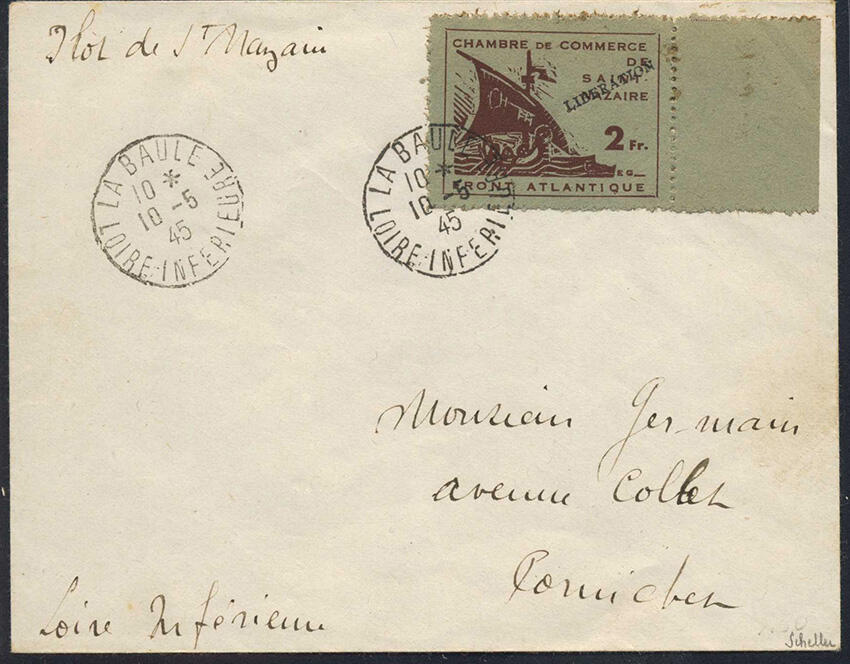 Ilot de St Nazaire
CHAMBRE DE COMMERCE
DE
SAINT-
NAZAIRE
LIBÉRATION
2 Fr.
EG
FRONT ATLANTIQUE
LA BAULE
10 *
10 -5
45
LOIRE-INFERIEURE
LA BAULE
10 *
10 -5
45
LOIRE-INFERIEURE
Monsieur Germain
avenue Collet
Pornichet
Loire Inférieure
Scheller